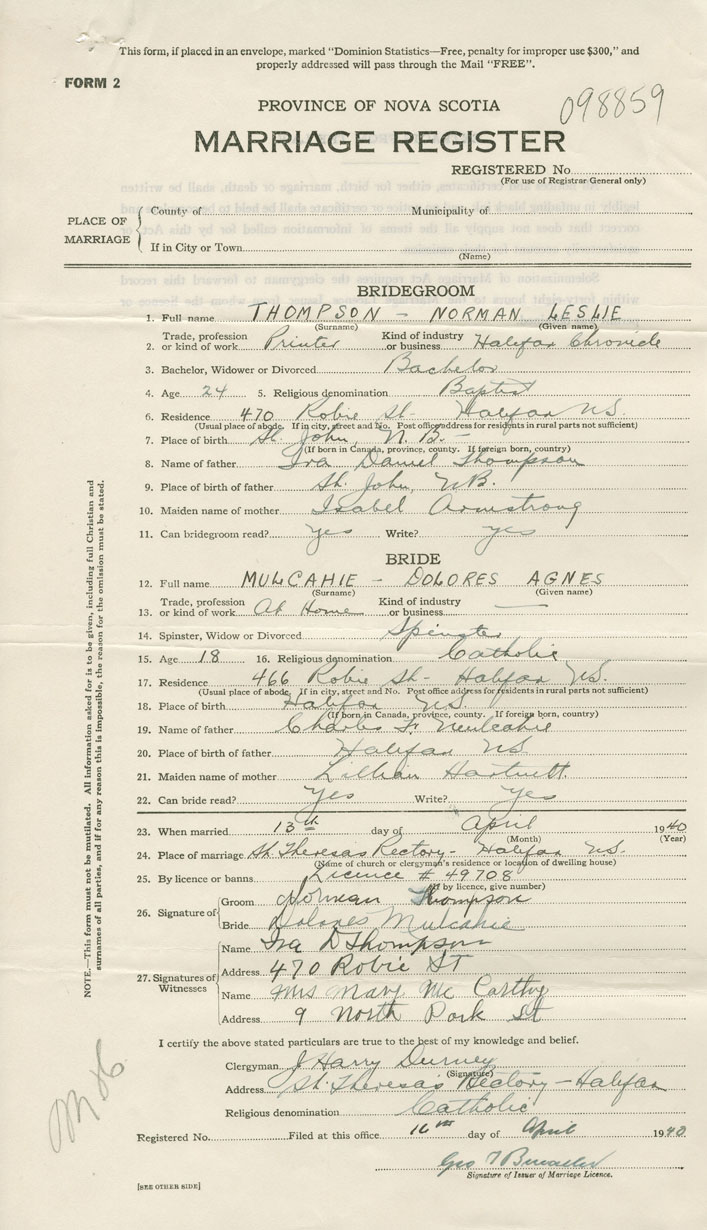 This form, if placed in an envelope, marked "Dominion Statistics—Free, penalty for improper use $300," and
properly addressed will pass through the Mail "FREE".
FORM 2
098859
PROVINCE OF NOVA SCOTIA
MARRIAGE REGISTER
REGISTERED No.
(For use of Registrar General only)
PLACE OF MARRIAGE
County of Municipality of
If in City or Town
(Name)
BRIDEGROOM
1. Full name THOMPSON - NORMAN LESLIE
(Surname) (Given name)
2. Trade, profession or kind of work Printer Kind of industry or business Halifax Chronicle
3. Bachelor, Widower or Divorced Bachelor
4. Age 24 5. Religious denomination Baptist
6. Residence 470 Robie St- Halifax N.S.
(Usual place of abode. If in city, street and No. Post office address for residents in rural parts not sufficient)
7. Place of birth St. John, N.B.-
(If born in Canada, province, county. If foreign born, country)
8. Name of father Ira Daniel Thompson
9. Place of birth of father St. John, N.B.
10. Maiden name of mother Isabel Armstrong
11. Can bridegroom read? yes Write? yes
BRIDE
12. Full name MULCAHIE - DOLORES AGNES
(Surname) (Given name)
13. Trade, profession or kind of work At Home Kind of industry or business —
14. Spinster, Widow or Divorced Spinster
15. Age 18 16. Religious denomination Catholic
17. Residence 466 Robie St- Halifax N.S.
(Usual place of abode. If in city, street and No. Post office address for residents in rural parts not sufficient)
18. Place of birth Halifax N.S.
(If born in Canada, province, county. If foreign born, country)
19. Name of father Charles Mulcahie
20. Place of birth of father Halifax N.S.
21. Maiden name of mother Lillian Hartnett
22. Can bride read? Yes Write? Yes
23. When married 13th day of April 1940
(Month) (Year)
24. Place of marriage St. Theresa's Rectory- Halifax N.S.
(Name of church or clergyman's residence or location of dwelling house)
25. By licence or banns Licence # 49708
(If by licence, give number)
26. Signature of
Groom Norman Thompson
Bride Dolores Mulcahie
27. Signatures of Witnesses
Name Ira D Thompson
Address 470 Robie ST
Name Mrs Mary Mc Carthy
Address 9 North Park St
I certify the above stated particulars are true to the best of my knowledge and belief.
Clergyman J Harry Durney
(Signature)
Address St. Theresa's Rectory - Halifax
Religious denomination Catholic
Registered No. Filed at this office 16th day of April 1940
Geo
Signature of Issuer of Marriage Licence.
[SEE OTHER SIDE]
NOTE.—This form must not be mutilated. All information asked for is to be given, including full Christian and
surnames of all parties, and if for any reason this is impossible, the reason for the omission must be stated.